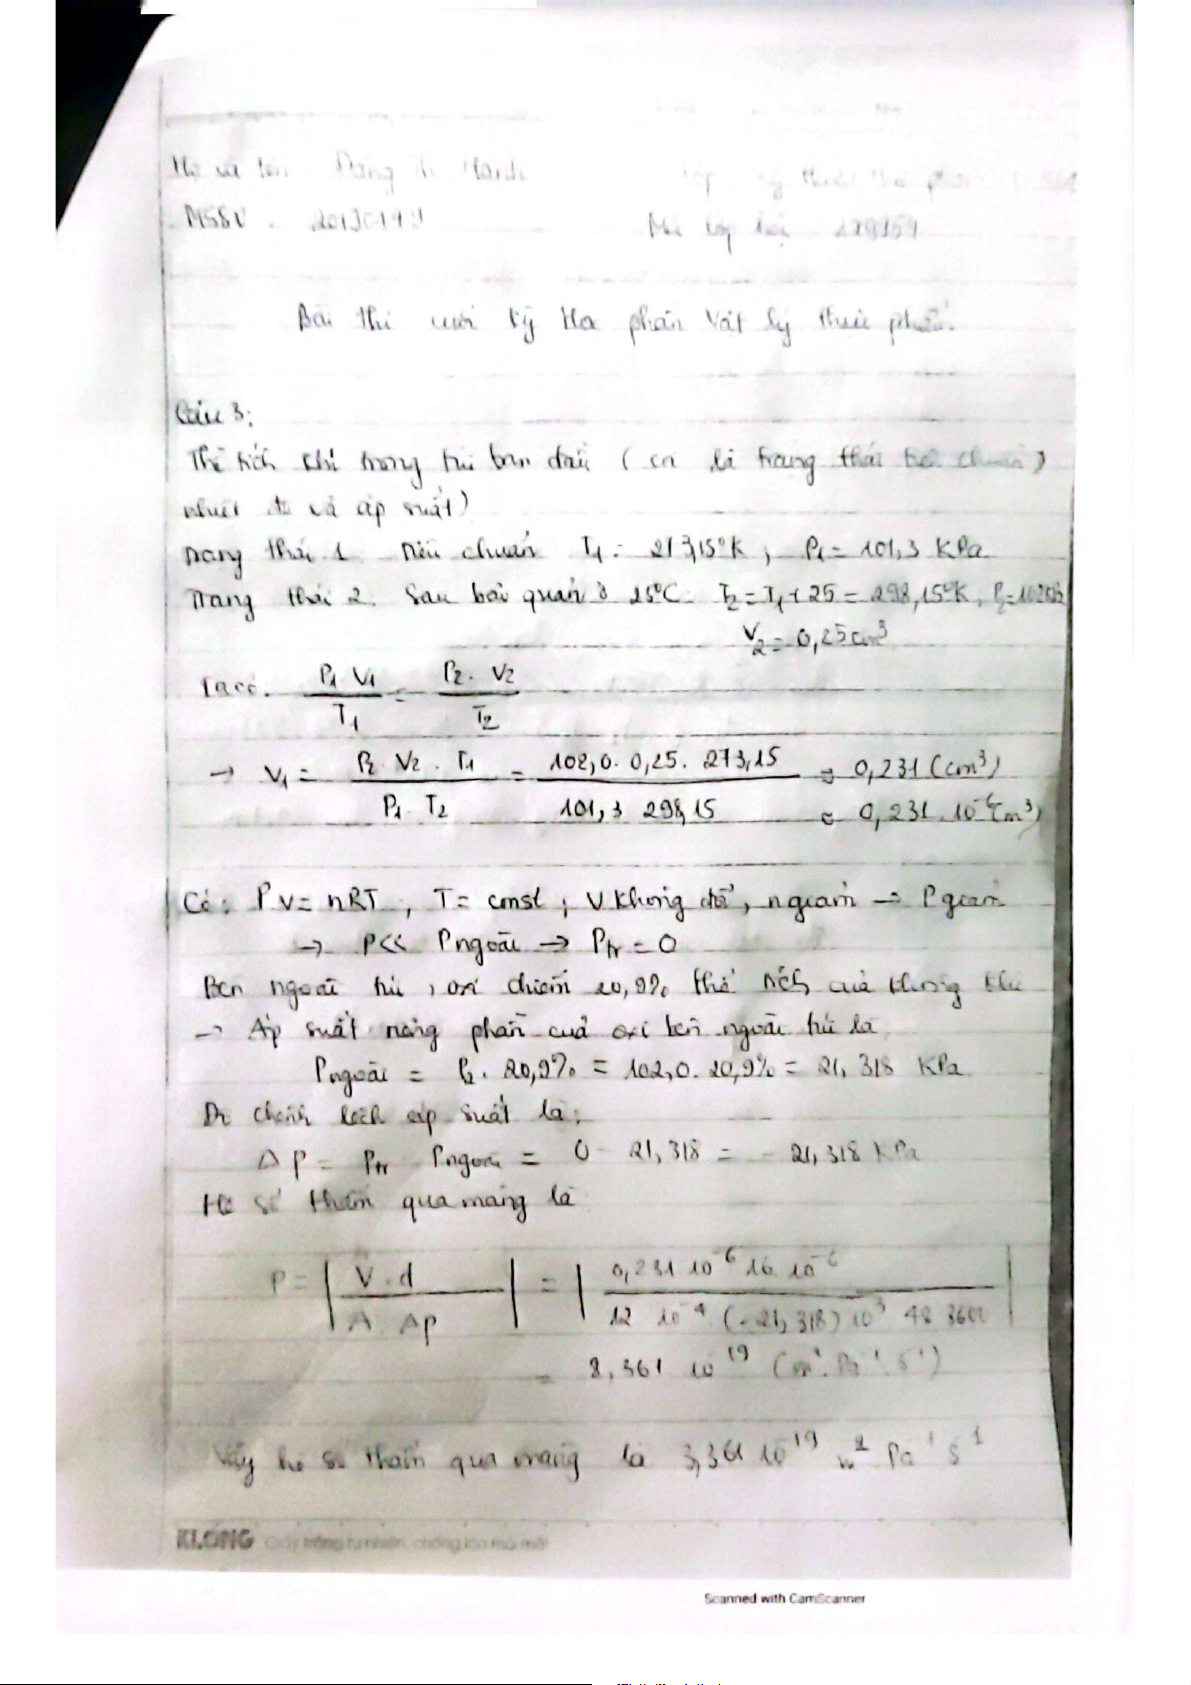 Họ và tên: Đặng Hạnh
MSSV: Mã lớp học
Bài thi cuối kỳ Học phần Vật lý thực phẩm.
Câu 3:
Thể tích khí trong túi ban đầu (coi là trạng thái tiêu chuẩn
nhiệt độ và áp suất)
Trạng thái 1 tiêu chuẩn T1 = 273,15°K, P1 = 101,3 KPa
Trạng thái 2. Sau bảo quản ở 25°C. T2 = T1 + 25 = 298,15°K,
V2 = 0,25 cm³
Ta có. P1 V1 / T1 = P2. V2 / T2
→ V1 = P2. V2. T1 / P1. T2 = 102,0. 0,25. 273,15 / 101,3 298,15 = 0,231 (cm³)
= 0,231. 10⁻⁶ (m³)
Có: PV = nRT, T = const, V không đổi, n giảm → P giảm
→ P<< Pngoài → Ptr = 0
Bên ngoài túi, oxi chiếm 20,9% thể tích của không khí
→ Áp suất riêng phần của oxi bên ngoài túi là
Pngoài = P2. 20,9% = 102,0. 20,9% = 21,318 KPa
Độ chênh lệch áp suất là:
Δp = Ptr - Pngoài = 0 - 21,318 = - 21,318 KPa
Hệ số thấm qua màng là
P = | V. d / A. Δp | = | 0,231 10⁻⁶ 16 10⁻⁶ / 12 10⁻⁴ (-21,318) 10³ 48 3600 |
=
Vậy hệ số thấm qua màng là
KLONG Giấy trắng tự nhiên, chống lóa mỏi mắt
Scanned with CamScanner